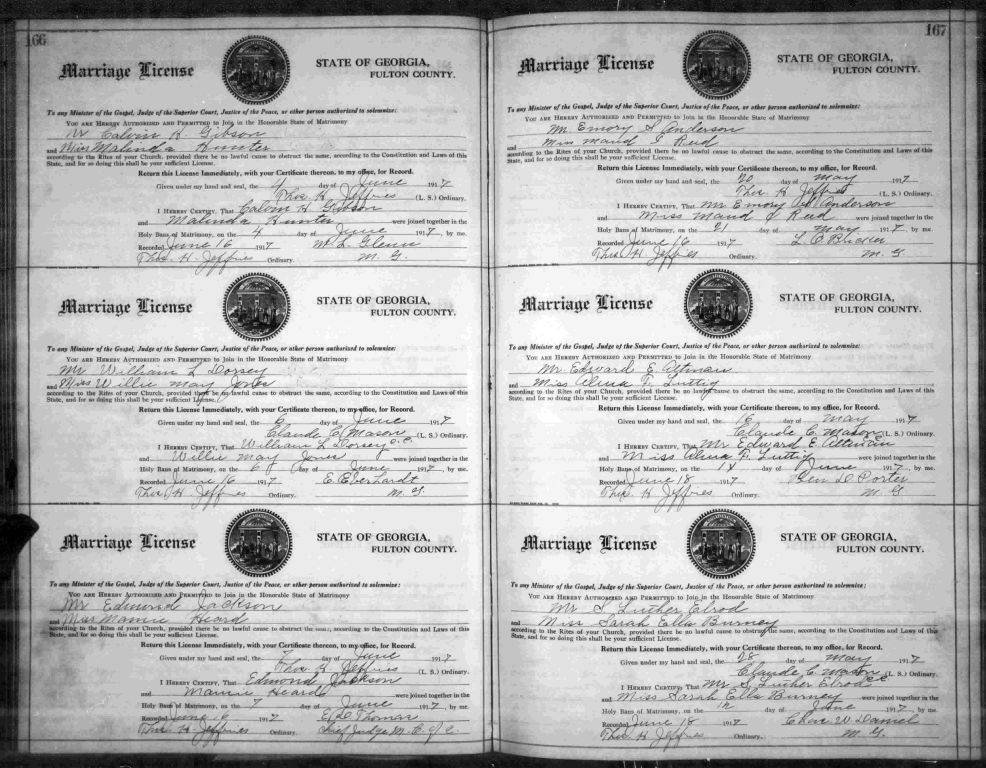 166
Marriage License
STATE OF GEORGIA,
FULTON COUNTY.
To any Minister of the Gospel, Judge of the Superior Court, Justice of the Peace, or other person authorized to solemnize:
YOU ARE HEREBY AUTHORIZED AND PERMITTED to Join in the Honorable State of Matrimony
Mr Calvin H Gibson
and Miss Malinda Hunter
according to the Rites of your Church, provided there be no lawful cause to obstruct the same, according to the Constitution and Laws of this
State, and for so doing this shall be your sufficient License.
Return this License Immediately, with your Certificate thereon, to my office, for Record.
Given under my hand and seal, the 4 day of June 1917
Thos H Jeffries (L. S.) Ordinary.
I HEREBY CERTIFY, That Calvin H Gibson
and Malinda Hunter were joined together in the
Holy Bans of Matrimony, on the 4 day of June 1917, by me.
Recorded June 16 1917 W. L. Glenn
Thos. H. Jeffries Ordinary. M. G.
Marriage License
STATE OF GEORGIA,
FULTON COUNTY.
To any Minister of the Gospel, Judge of the Superior Court, Justice of the Peace, or other person authorized to solemnize:
YOU ARE HEREBY AUTHORIZED AND PERMITTED to Join in the Honorable State of Matrimony
Mr William L Dorsey
and Miss Willie May Jones
according to the Rites of your Church, provided there be no lawful cause to obstruct the same, according to the Constitution and Laws of this
State, and for so doing this shall be your sufficient License.
Return this License Immediately, with your Certificate thereon, to my office, for Record.
Given under my hand and seal, the 6 day of June 1917
Claude C Mason (L. S.) Ordinary.
I HEREBY CERTIFY, That William L Dorsey c.c.
and Willie May Jones were joined together in the
Holy Bans of Matrimony, on the 6 day of June 1917, by me.
Recorded June 16 1917 E. Eberhardt
Thos H Jeffries Ordinary. M. G.
Marriage License
STATE OF GEORGIA,
FULTON COUNTY.
To any Minister of the Gospel, Judge of the Superior Court, Justice of the Peace, or other person authorized to solemnize:
YOU ARE HEREBY AUTHORIZED AND PERMITTED to Join in the Honorable State of Matrimony
Mr Edmond Jackson
and Miss Mamie Heard
according to the Rites of your Church, provided there be no lawful cause to obstruct the same, according to the Constitution and Laws of this
State, and for so doing this shall be your sufficient License.
Return this License Immediately, with your Certificate thereon, to my office, for Record.
Given under my hand and seal, the 7 day of June 1917
Thos H Jeffries (L. S.) Ordinary.
I HEREBY CERTIFY, That Edmond Jackson
and Mamie Heard were joined together in the
Holy Bans of Matrimony, on the 7 day of June 1917, by me.
Recorded June 16 1917 E. D. Thomas
Thos H Jeffries Ordinary. Chief Judge M. C. of C.
167
Marriage License
STATE OF GEORGIA,
FULTON COUNTY.
To any Minister of the Gospel, Judge of the Superior Court, Justice of the Peace, or other person authorized to solemnize:
YOU ARE HEREBY AUTHORIZED AND PERMITTED to Join in the Honorable State of Matrimony
Mr Emory Anderson
and Miss Maud Reid
according to the Rites of your Church, provided there be no lawful cause to obstruct the same, according to the Constitution and Laws of this
State, and for so doing this shall be your sufficient License.
Return this License Immediately, with your Certificate thereon, to my office, for Record.
Given under my hand and seal, the 20 day of May 1917
Thos H Jeffries (L. S.) Ordinary.
I HEREBY CERTIFY, That Mr Emory Anderson
and Miss Maud Reid were joined together in the
Holy Bans of Matrimony, on the 21 day of May 1917, by me.
Recorded June 16 1917 L. C.
Thos H Jeffries Ordinary. M. G.
Marriage License
STATE OF GEORGIA,
FULTON COUNTY.
To any Minister of the Gospel, Judge of the Superior Court, Justice of the Peace, or other person authorized to solemnize:
YOU ARE HEREBY AUTHORIZED AND PERMITTED to Join in the Honorable State of Matrimony
Mr Edward E Altman
and Miss Alma F. Luttig
according to the Rites of your Church, provided there be no lawful cause to obstruct the same, according to the Constitution and Laws of this
State, and for so doing this shall be your sufficient License.
Return this License Immediately, with your Certificate thereon, to my office, for Record.
Given under my hand and seal, the 16 day of May 1917
Claude C Mason (L. S.) Ordinary.
I HEREBY CERTIFY, That Mr Edward E Altman
and Miss Alma F. Luttig were joined together in the
Holy Bans of Matrimony, on the 14 day of June 1917, by me.
Recorded June 18 1917 Ben D Porter
Thos H Jeffries Ordinary. M. G
Marriage License
STATE OF GEORGIA,
FULTON COUNTY.
To any Minister of the Gospel, Judge of the Superior Court, Justice of the Peace, or other person authorized to solemnize:
YOU ARE HEREBY AUTHORIZED AND PERMITTED to Join in the Honorable State of Matrimony
Mr S. Luther Elrod
and Miss Sarah Ella Burney
according to the Rites of your Church, provided there be no lawful cause to obstruct the same, according to the Constitution and Laws of this
State, and for so doing this shall be your sufficient License.
Return this License Immediately, with your Certificate thereon, to my office, for Record.
Given under my hand and seal, the 28 day of May 1917
Claude C Mason (L. S.) Ordinary.
I HEREBY CERTIFY, That Mr S Luther Elrod c.c.
and Miss Sarah Ella Burney were joined together in the
Holy Bans of Matrimony, on the 12 day of June 1917, by me.
Recorded June 18 1917 Chas. W Daniel
Thos H Jeffries Ordinary. M. G.